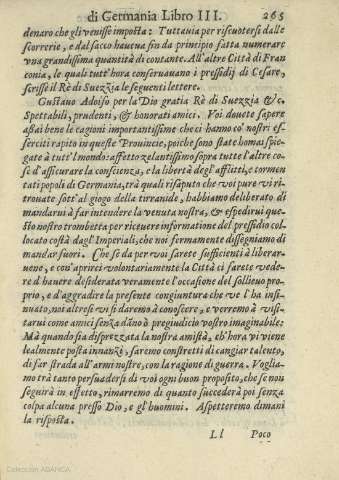 di Germania Libro III. 265
denaro che gli venisse imposta: Tuttauia per riscuotersi dalle
scorrerie, e dal sacco haueua fin da principio fatta numerare
vna grandissima quantità di contante. All'altre Città di Fran
conia, le quali tutt'hora conseruauano i pressidij di Cesare,
scrisse il Rè di Suezzia le seguenti lettere.
Gustauo Adolfo per la Dio gratia Rè di Suezzia &c.
Spettabili, prudenti, & honorati amici. Voi douete sapere
assai bene le cagioni importantissime che ci hanno co' nostri es-
serciti rapito in queste Prouincie, poiche sono state homai spie-
gate à tutt'l mondo: affetto zelantissimo sopra tutte l'altre co-
se d'assicurare la conscienza, e la libertà degl'afflitti, e tormen
tati popoli di Germania, trà quali risaputo che voi pure vi ri-
trouate sott'al giogo della tirranide, habbiamo deliberato di
mandarui à far intendere la venuta nostra, & espedirui que-
sto nostro trombetta per riceuere informatione del pressidio col
locato costà dagl'Imperiali, che noi fermamente dissegniamo di
mandar fuori. Che se da per voi sarete sufficienti à liberar-
uene, e con'aprirci volontariamente la Città ci farete vede-
re d'hauere desiderata veramente l'occasione del sollieuo pro-
prio, e d'aggradire la presente congiuntura che ve l'hà insi-
nuato, noi altresi vi si daremo à conoscere, e verremo à visi-
tarui come amici senza dãno ò pregiudicio vostro imaginabile:
Mà quando sia disprezzata la nostra amistà, ch'hora vi viene
lealmente posta innanzi, saremo constretti di cangiar talento,
di far strada all'armi nostre, con la ragione di guerra. Voglia-
mo trà tanto persuadersi di voi ogni buon proposito, che se non
seguirà in effetto, rimarremo di quanto succederà poi senza
colpa alcuna presso Dio, e gl'huomini. Aspetteremo dimani
la risposta.
Ll Poco
Colección ABANCA